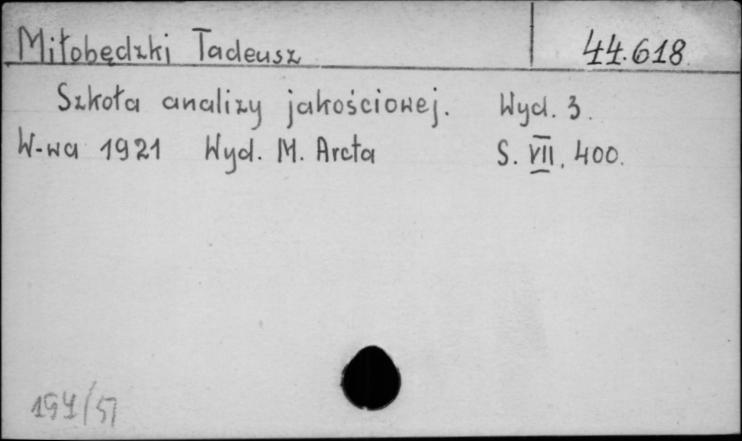 Miłobędzki Tadeusz 44.618
Szkoła analizy jakościowej. Wyd. 3.
W-wa 1921 Wyd. M. Arcta S. VII, 400.